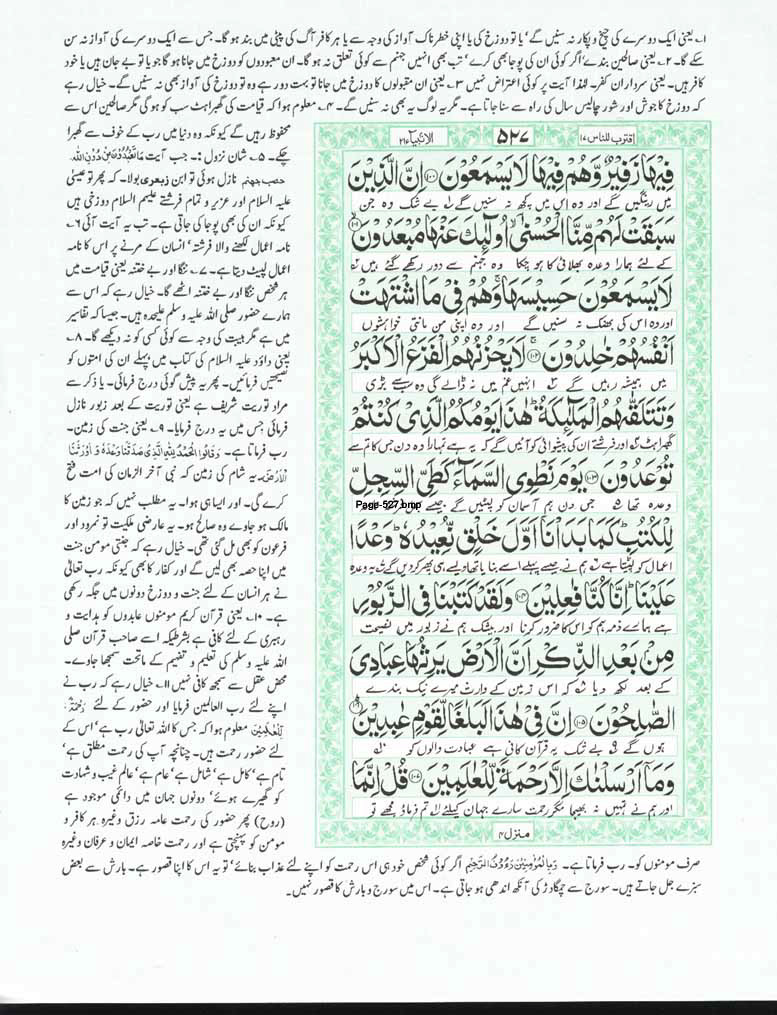 ۱۔ یعنی ایک دوسرے کی چیخ و پکار نہ سنیں گے' یا تو دوزخ کی یا اپنی خطرناک آواز کی وجہ سے یا ہر کافر آگ کی پیٹی میں بند ہو گا۔ جس سے ایک دوسرے کی آواز نہ سن
سکے گا۔ ۲۔ یعنی صالحین بندے' اگر کوئی ان کی پوجا بھی کرے' تب بھی انہیں جہنم سے کوئی تعلق نہ ہو گا۔ ان معبودوں کو دوزخ میں جانا ہو گا جو یا تو بے جان ہیں یا خود
کافر ہیں۔ یعنی سرداران کفر۔ لہٰذا آیت پر کوئی اعتراض نہیں ۳۔ یعنی ان مقبولوں کا دوزخ میں جانا تو بہت دور ہے وہ تو دوزخ کی آواز بھی نہ سنیں گے۔ خیال رہے
کہ دوزخ کا جوش اور شور چالیس سال کی راہ سے سنا جاتا ہے۔ مگر یہ لوگ یہ بھی نہ سنیں گے۔ ۴۔ معلوم ہوا کہ قیامت کی گھبراہٹ سب کو ہو گی مگر صالحین اس سے
اقترب للناس ۱۷
۵۲۷
الانبیآء ۲۱
فِيْهَا زَفِيْرٌ وَّهُمْ فِيْهَا لَا يَسْمَعُوْنَ ۝۱۰۰ اِنَّ الَّذِيْنَ
میں رینگیں گے اور وہ اس میں کچھ نہ سنیں گے لہ بے شک وہ جن
سَبَقَتْ لَهُمْ مِّنَّا الْحُسْنٰٓى اُولٰٓئِكَ عَنْهَا مُبْعَدُوْنَ ۝۱۰۱
کے لئے ہمارا وعدہ بھلائی کا ہو چکا وہ جہنم سے دور رکھے گئے ہیں
لَا يَسْمَعُوْنَ حَسِيْسَهَا وَهُمْ فِيْ مَا اشْتَهَتْ
اور وہ اس کی بھنک نہ سنیں گے اور وہ اپنی من مانتی خواہشوں
اَنْفُسُهُمْ خٰلِدُوْنَ ۝۱۰۲ لَا يَحْزُنُهُمُ الْفَزَعُ الْاَكْبَرُ
میں ہمیشہ رہیں گے انہیں غم میں نہ ڈالے گی وہ سب سے بڑی
وَتَتَلَقّٰىهُمُ الْمَلٰٓئِكَةُ هٰذَا يَوْمُكُمُ الَّذِيْ كُنْتُمْ
گھبراہٹ اور فرشتے ان کی پیشوائی کو آئیں گے کہ یہ ہے تمہارا وہ دن جس کا تم سے
تُوْعَدُوْنَ ۝۱۰۳ يَوْمَ نَطْوِي السَّمَآءَ كَطَيِّ السِّجِلِّ
وعدہ تھا جس دن ہم آسمان کو لپیٹیں گے جیسے
Page-527.bmp
لِلْكُتُبِ كَمَا بَدَاْنَآ اَوَّلَ خَلْقٍ نُّعِيْدُهٗ وَعْدًا
اعمال کو لپیٹتا ہے ہم نے جیسے پہلے اسے بنایا تھا ویسے ہی پھر کر دیں گے یہ وعدہ
عَلَيْنَا اِنَّا كُنَّا فٰعِلِيْنَ ۝۱۰۴ وَلَقَدْ كَتَبْنَا فِي الزَّبُوْرِ
ہے ہمارے ذمہ ہم کو اس کا ضرور کرنا اور بیشک ہم نے زبور میں نصیحت
مِنْ بَعْدِ الذِّكْرِ اَنَّ الْاَرْضَ يَرِثُهَا عِبَادِيَ
کے بعد لکھ دیا کہ اس زمین کے وارث میرے نیک بندے
الصّٰلِحُوْنَ ۝۱۰۵ اِنَّ فِيْ هٰذَا لَبَلٰغًا لِّقَوْمٍ عٰبِدِيْنَ
ہوں گے بے شک یہ قرآن کافی ہے عبادت والوں کو
وَمَآ اَرْسَلْنٰكَ اِلَّا رَحْمَةً لِّلْعٰلَمِيْنَ ۝۱۰۷ قُلْ اِنَّمَا
اور ہم نے تمہیں نہ بھیجا مگر رحمت سارے جہان کیلئے تم فرماؤ مجھے تو
منزل ۴
محفوظ رہیں گے کیونکہ وہ دنیا میں رب کے خوف سے گھبرا
چکے۔ ۵۔ شان نزول :۔ جب آیت مَا تَعْبُدُوْنَ مِنْ دُوْنِ اللّٰهِ
حصب جہنم نازل ہوئی تو ابن زبعری بولا۔ کہ پھر تو عیسیٰ
علیہ السلام اور عزیر و تمام فرشتے علیہم السلام دوزخی ہیں
کیونکہ ان کی بھی پوجا کی جاتی ہے۔ تب یہ آیت آئی ۶۔
نامہ اعمال لکھنے والا فرشتہ' انسان کے مرنے پر اس کا نامہ
اعمال لپیٹ دیتا ہے۔ ۷۔ ننگا اور بے ختنہ یعنی قیامت میں
ہر شخص ننگا اور بے ختنہ اٹھے گا۔ خیال رہے کہ اس سے
ہمارے حضور صلی اللہ علیہ وسلم علیحدہ ہیں۔ جیسا کہ تفاسیر
میں ہے مگر ہیبت کی وجہ سے کوئی کسی کو نہ دیکھے گا۔ ۸۔
یعنی داؤد علیہ السلام کی کتاب میں پہلے ان کی امتوں کو
نصیحتیں فرمائیں۔ پھر یہ پیش گوئی درج فرمائی۔ یا ذکر سے
مراد توریت شریف ہے یعنی توریت کے بعد زبور نازل
فرمائی جس میں یہ درج فرمایا۔ ۹۔ یعنی جنت کی زمین۔
رب فرماتا ہے۔ وَقَالُوا الْحَمْدُ لِلّٰهِ الَّذِيْ صَدَقَنَا وَعْدَهٗ وَاَوْرَثَنَا
الْاَرْضَ۔ یہ شام کی زمین کہ نبی آخر الزمان کی امت فتح
کرے گی۔ اور ایسا ہی ہوا۔ یہ مطلب نہیں کہ جو زمین کا
مالک ہو جاوے وہ صالح ہو۔ یہ عارضی ملکیت تو نمرود اور
فرعون کو بھی مل گئی تھی۔ خیال رہے کہ جنتی مومن جنت
میں اپنا حصہ بھی لیں گے اور کفار کا بھی کیونکہ رب تعالیٰ
نے ہر انسان کے لئے جنت و دوزخ دونوں میں جگہ رکھی
ہے۔ ۱۰۔ یعنی قرآن کریم مومنوں عابدوں کو ہدایت و
رہبری کے لئے کافی ہے بشرطیکہ اسے صاحب قرآن صلی
اللہ علیہ وسلم کی تعلیم و تفہیم کے ماتحت سمجھا جاوے۔
محض عقل سے سمجھ کافی نہیں ۱۱۔ خیال رہے کہ رب نے
اپنے لئے رب العالمین فرمایا اور حضور کے لئے رَحْمَةً
لِّلْعٰلَمِيْنَ معلوم ہوا کہ جس کا اللہ تعالیٰ رب ہے' اس کے
لئے حضور رحمت ہیں۔ چنانچہ آپ کی رحمت مطلق ہے'
تام ہے' کامل ہے' شامل ہے' عام ہے' عالم غیب و شہادت
کو گھیرے ہوئے' دونوں جہان میں دائمی موجود ہے
(روح) پھر حضور کی رحمت عامہ رزق وغیرہ ہر کافر و
مومن کو پہنچتی ہے اور رحمت خاصہ ایمان و عرفان وغیرہ
صرف مومنوں کو۔ رب فرماتا ہے۔ وَبِالْمُؤْمِنِيْنَ رَءُوْفٌ الرَّحِيْمِ اگر کوئی شخص خود ہی اس رحمت کو اپنے لئے عذاب بنائے' تو یہ اس کا اپنا قصور ہے۔ بارش سے بعض
سبزے جل جاتے ہیں۔ سورج سے چمگادڑ کی آنکھ اندھی ہو جاتی ہے۔ اس میں سورج و بارش کا قصور نہیں۔